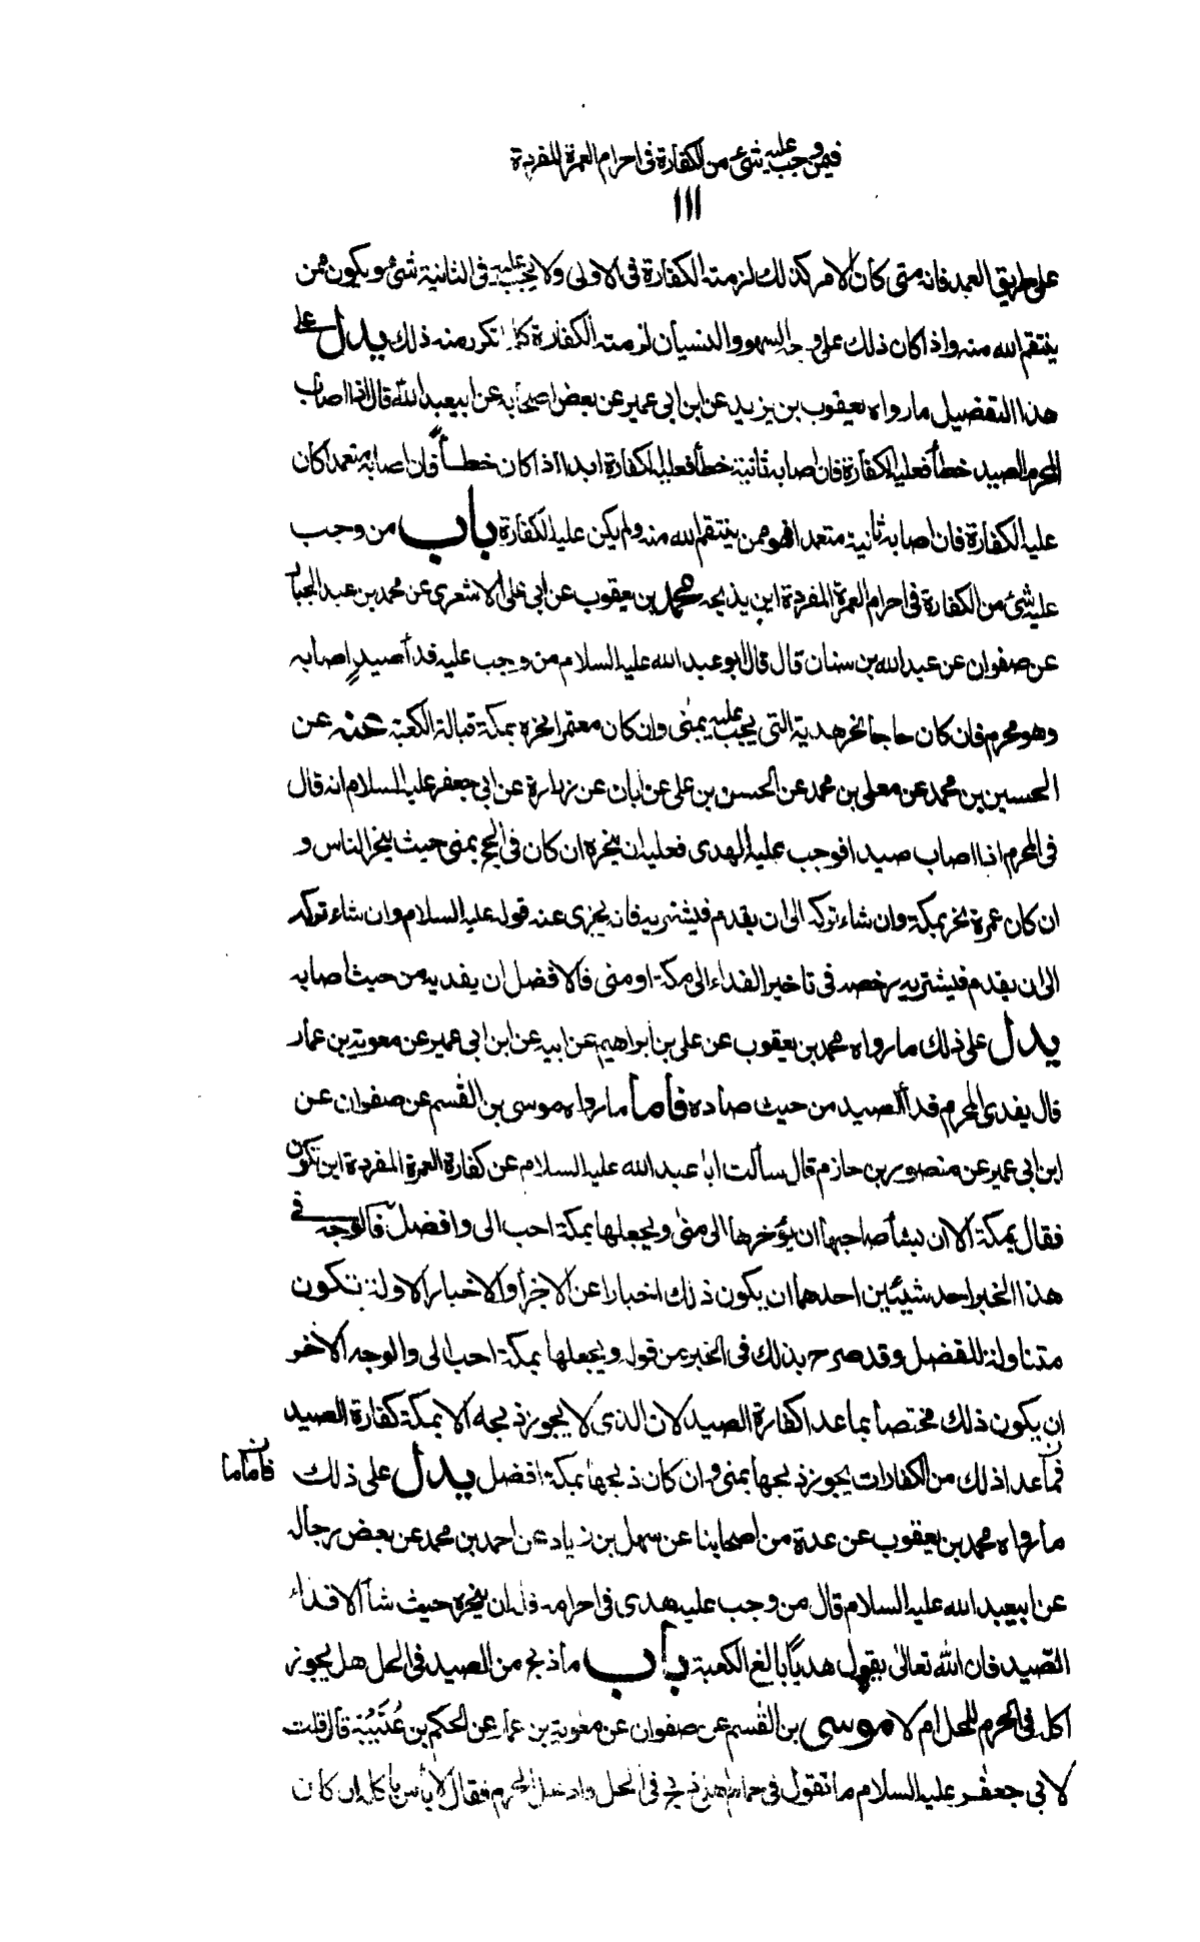 فيمن وجب عليه شئ من الكفارة فى احرام العمرة المفردة
١١١
على طريق العمد فانه متى كان الامر كذلك لزمته الكفارة فى الاولى ولا يجب عليه فى الثانية شئ ويكون ممن
ينتقم الله منه واذا كان ذلك على وجه السهو والنسيان لزمته الكفارة كلما تكرر منه ذلك يدل على
هذا التفصيل مارواه يعقوب بن يزيد عن ابن ابى عمير عن بعض اصحابه عن ابيعبد الله قال اذا اصاب
المحرم الصيد خطأ فعليه الكفارة فان اصابه ثانية خطأ فعليه الكفارة ابدا اذا كان خطأ فان اصابه متعمدا كان
عليه الكفارة فان اصابه ثانية متعمدا فهو ممن ينتقم الله منه ولم يكن عليه الكفارة باب من وجب
عليه شئ من الكفارة فى احرام العمرة المفردة اين يذبحه محمد بن يعقوب عن ابى على الاشعرى عن محمد بن عبد الجبار
عن صفوان عن عبد الله بن سنان قال قال ابو عبد الله عليه السلام من وجب عليه فدأ صيد اصابه
وهو محرم فان كان حاجا نحر هديه التى يجب عليه بمنى وان كان معتمرا نحره بمكة قبالة الكعبة عنه عن
الحسين بن محمد عن معلى بن محمد عن الحسن بن على عن ابان عن زرارة عن ابى جعفر عليه السلام انه قال
فى المحرم اذا اصاب صيدا فوجب عليه الهدى فعليه ان ينحره ان كان فى الحج بمنى حيث ينحر الناس و
ان كان عمرة نحر بمكة وان شاء تركه الى ان يقدم فيشتريه فانه يجزى عنه قوله عليه السلام وان شاء تركه
الى ان يقدم فيشتريه رخصه فى تاخير الفداء الى مكة او منى فالافضل ان يفديه من حيث اصابه
يدل على ذلك مارواه محمد بن يعقوب عن على بن ابراهيم عن ابيه عن ابن ابى عمير عن معوية بن عمار
قال يفدى المحرم فدأ الصيد من حيث صاده فأما مارواه موسى بن القسم عن صفوان عن
ابن ابى عمير عن منصور بن حازم قال سألت ابا عبد الله عليه السلام عن كفارة العمرة المفردة اين تكون
فقال بمكة الا ان يشأ صاحبها ان يؤخرها الى منى ويجعلها بمكة احب الى وافضل فالوجه فى
هذا الخبر احد شيئين احدهما ان يكون ذلك اخبارا عن الاجزأ والاخبار الاولة تكون
متناولة للفضل وقد صرح بذلك فى الخبر من قوله ويجعلها بمكة احب الى والوجه الآخر
ان يكون ذلك مختصا بما عدا كفارة الصيد لان الذى لا يجوز ذبحه الا بمكة كفارة الصيد
فما عدا ذلك من الكفارات يجوز ذبحها بمنى وان كان ذبحها بمكة افضل يدل على ذلك
فأماما
مارواه محمد بن يعقوب عن عدة من اصحابنا عن سهل بن زياد عن احمد بن محمد عن بعض رجاله
عن ابيعبد الله عليه السلام قال من وجب عليه هدى فى احرامه فله ان ينحره حيث شأ الا فداء
الصّيد فان الله تعالى يقول هدياً بالغ الكعبة باب ما ذبح من الصيد فى الحل هل يجوز
اكله فى الحرم للمحل ام لا موسى بن القسم عن صفوان عن معوية بن عمار عن الحكم بن عُتَيْبَة قال قلت
لابى جعفر عليه السلام ما تقول فى حمام اهلى ذبح فى الحل وادخل الحرم فقال لا بأس باكله ان كان